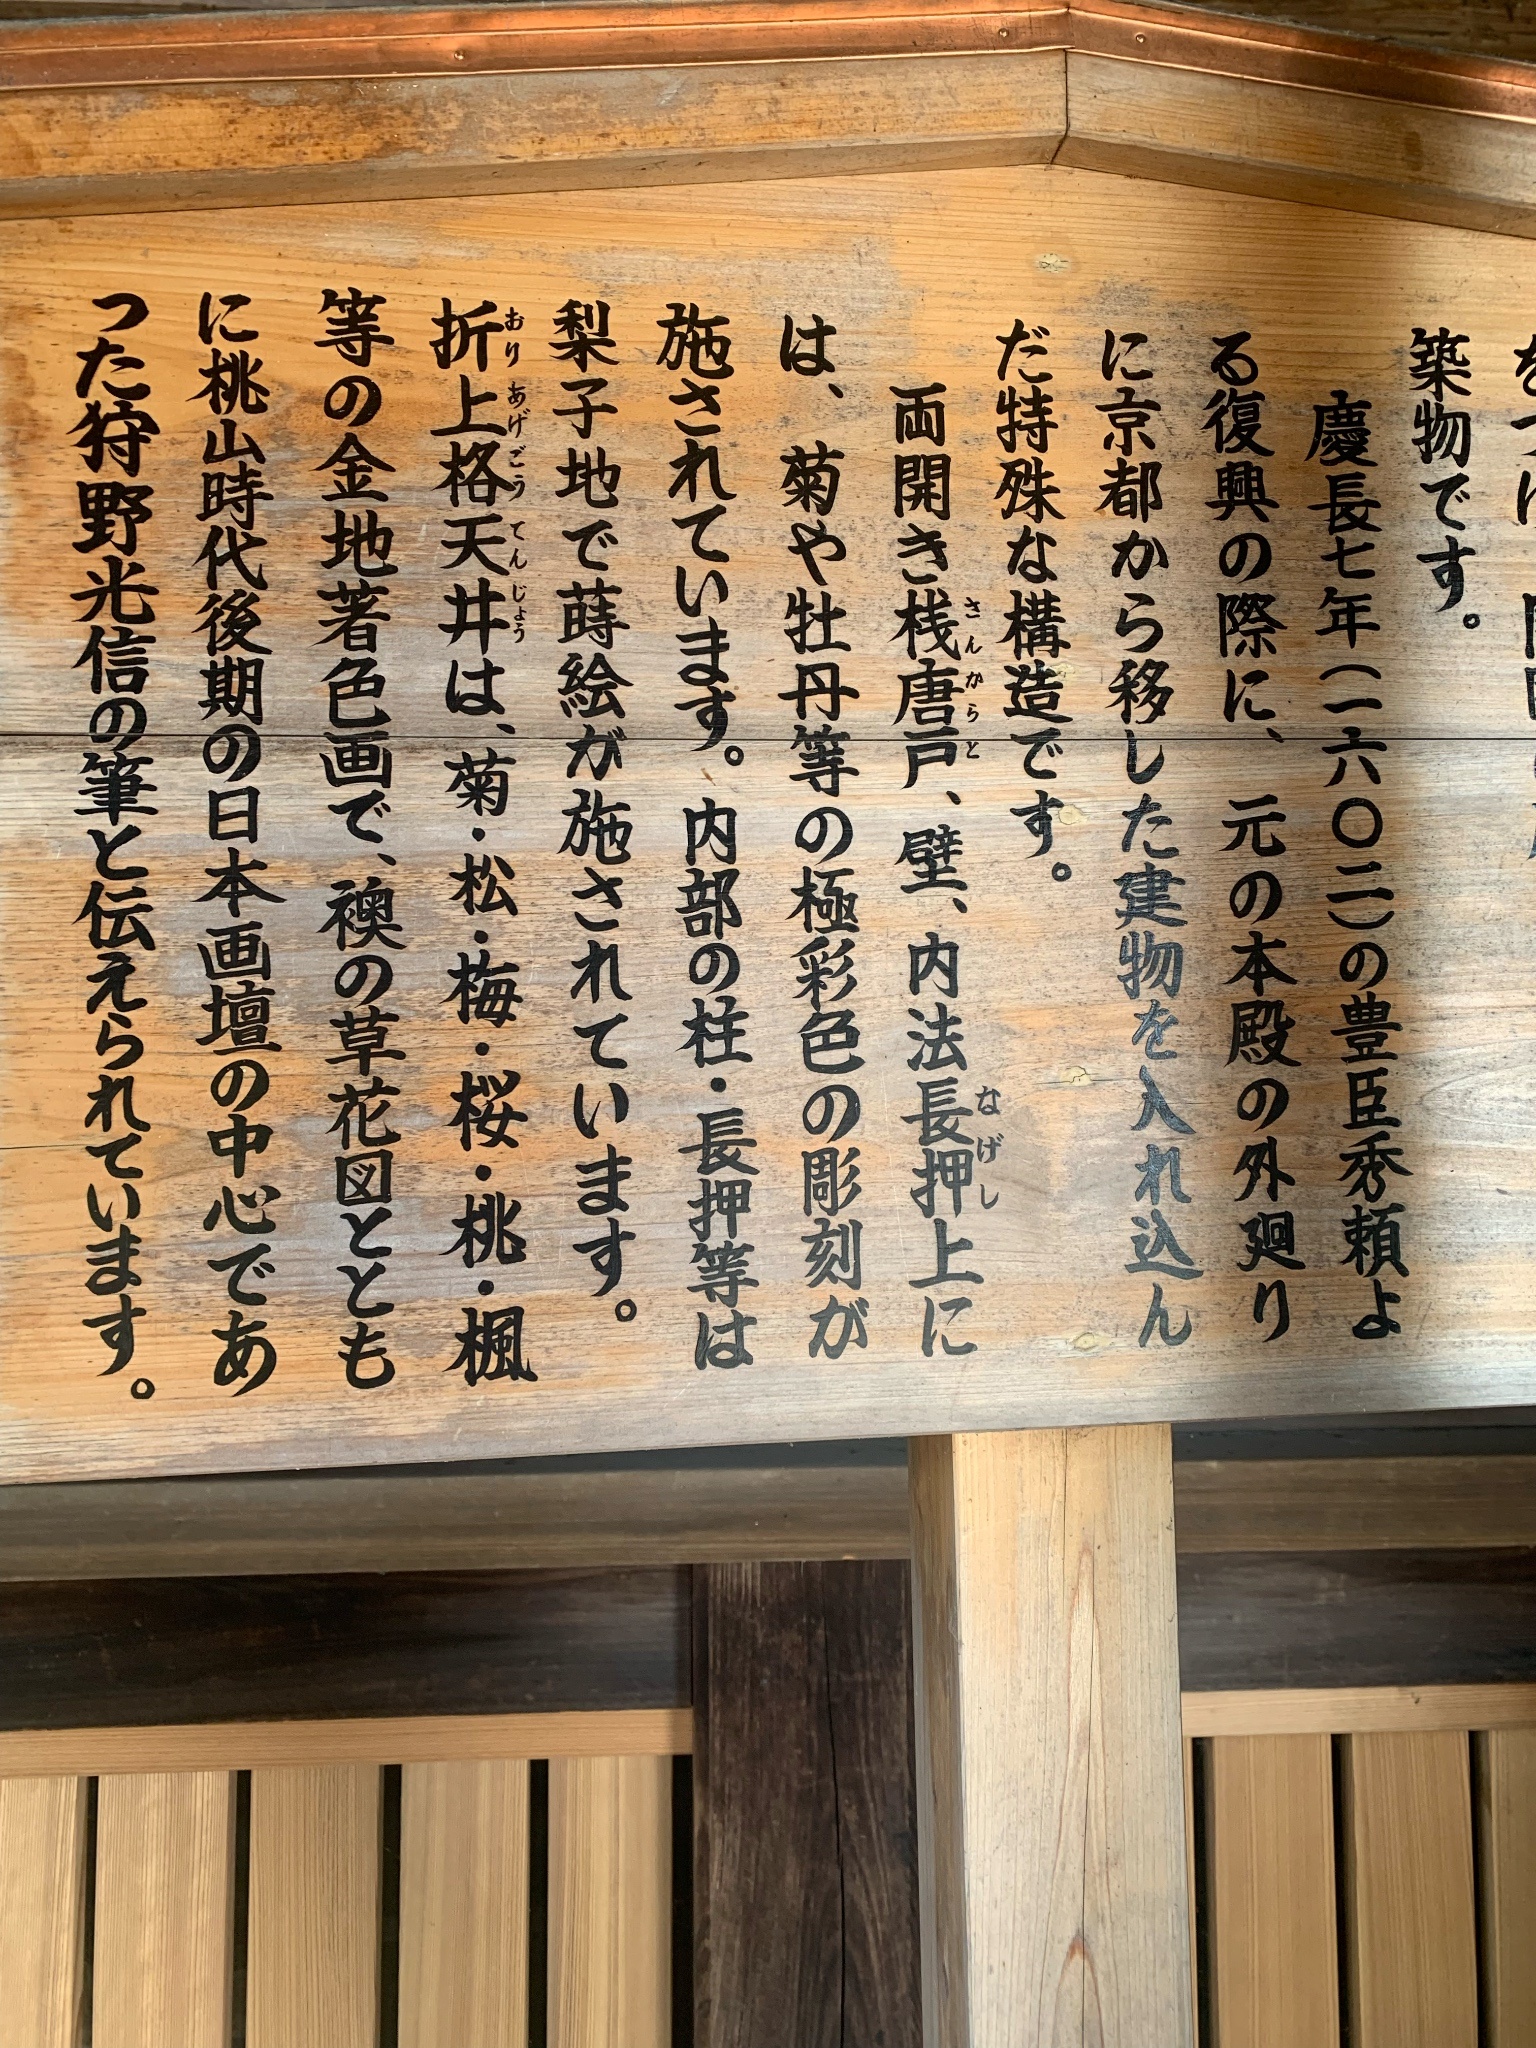 築物です。
慶長七年(一六〇二)の豊臣秀頼よ
る復興の際に、元の本殿の外廻り
に京都から移した建物を入れ込ん
だ特殊な構造です。
両開き桟唐戸、壁、内法長押上に
さんからと
なげし
は、菊や牡丹等の極彩色の彫刻が
施されています。内部の柱・長押等は
梨子地で蒔絵が施されています。
折上格天井は、菊・松・梅・桜・桃・楓
おりあげごうてんじょう
等の金地著色画で、襖の草花図ととも
に桃山時代後期の日本画壇の中心であ
った狩野光信の筆と伝えられています。